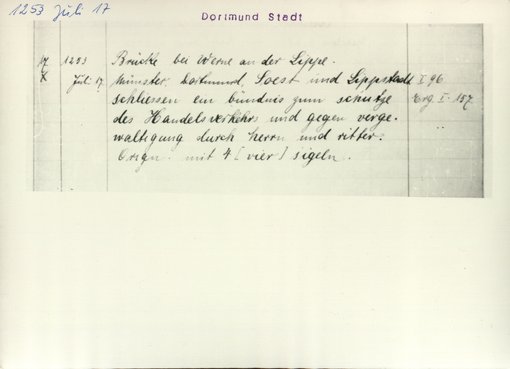 1253 Juli 17
Dortmund Stadt
17 1253 Brücke bei Werne an der Lippe.
X Juli 17. Münster, Dortmund, Soest und Lippstadt I 96
schliessen ein bündnis zum schutze Erg. I. 157.
des Handelsverkehrs und gegen verge-
waltigung durch herrn und ritter.
Orign. mit 4 (vier) sigeln.